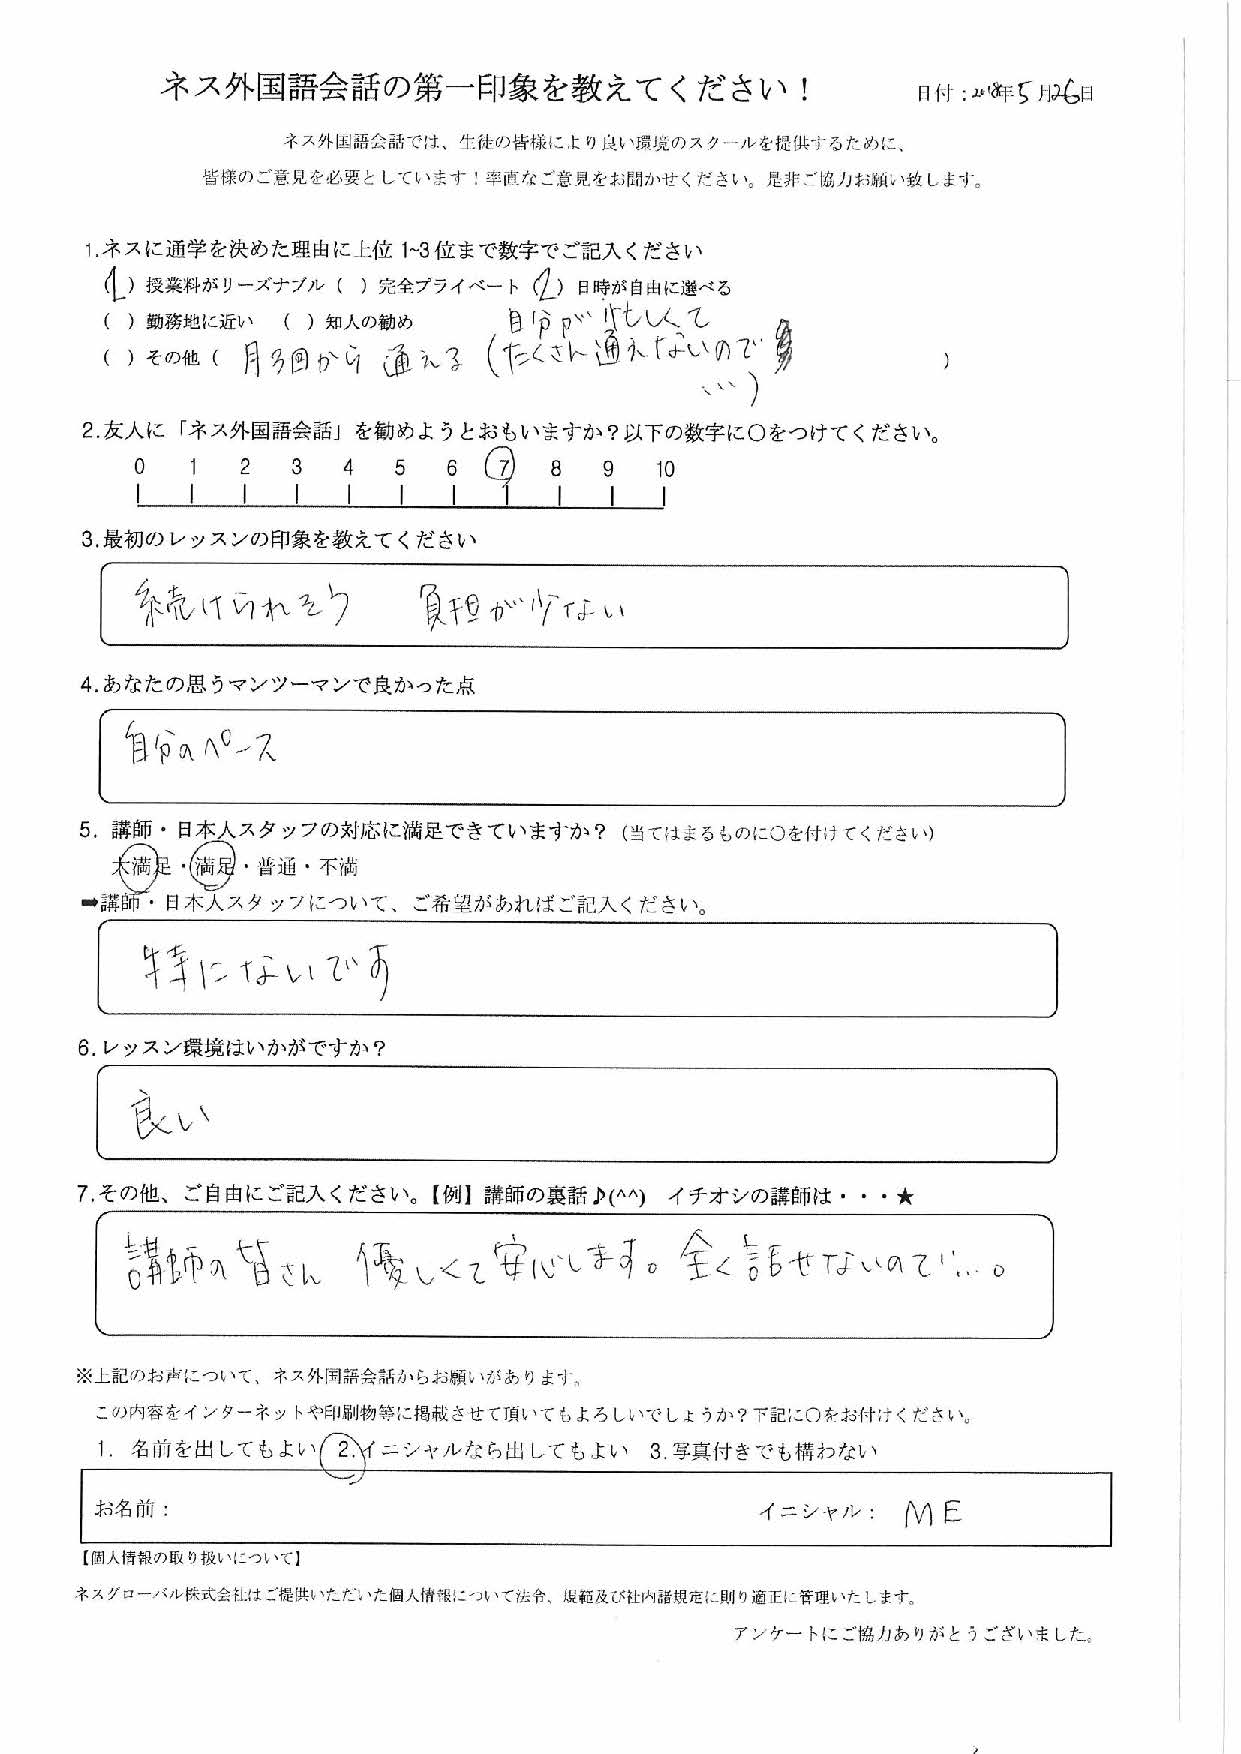 ネス外国語会話の第一印象を教えてください！
日付：2018年5月26日
ネス外国語会話では、生徒の皆様により良い環境のスクールを提供するために、
皆様のご意見を必要としています！率直なご意見をお聞かせください。是非ご協力お願い致します。
1.ネスに通学を決めた理由に上位1~3位まで数字でご記入ください
（1）授業料がリーズナブル（ ）完全プライベート（2）日時が自由に選べる
（ ）勤務地に近い （ ）知人の勧め
自分が忙しくて
（ ）その他（ 月3回から通える（たくさん通えないので ）
…）
2.友人に「ネス外国語会話」を勧めようとおもいますか？以下の数字に〇をつけてください。
0 1 2 3 4 5 6 7 8 9 10
3.最初のレッスンの印象を教えてください
続けられそう 負担が少ない
4.あなたの思うマンツーマンで良かった点
自分のペース
5. 講師・日本人スタッフの対応に満足できていますか？（当てはまるものに〇を付けてください）
大満足・満足・普通・不満
➡講師・日本人スタッフについて、ご希望があればご記入ください。
特にないです
6.レッスン環境はいかがですか？
良い
7.その他、ご自由にご記入ください。【例】講師の裏話♪(^^) イチオシの講師は・・・★
講師の皆さん 優しくて安心します。全く話せないので…。
※上記のお声について、ネス外国語会話からお願いがあります。
この内容をインターネットや印刷物等に掲載させて頂いてもよろしいでしょうか？下記に〇をお付けください。
1. 名前を出してもよい 2.イニシャルなら出してもよい 3.写真付きでも構わない
お名前： イニシャル： ME
【個人情報の取り扱いについて】
ネスグローバル株式会社はご提供いただいた個人情報について法令、規範及び社内諸規定に則り適正に管理いたします。
アンケートにご協力ありがとうございました。